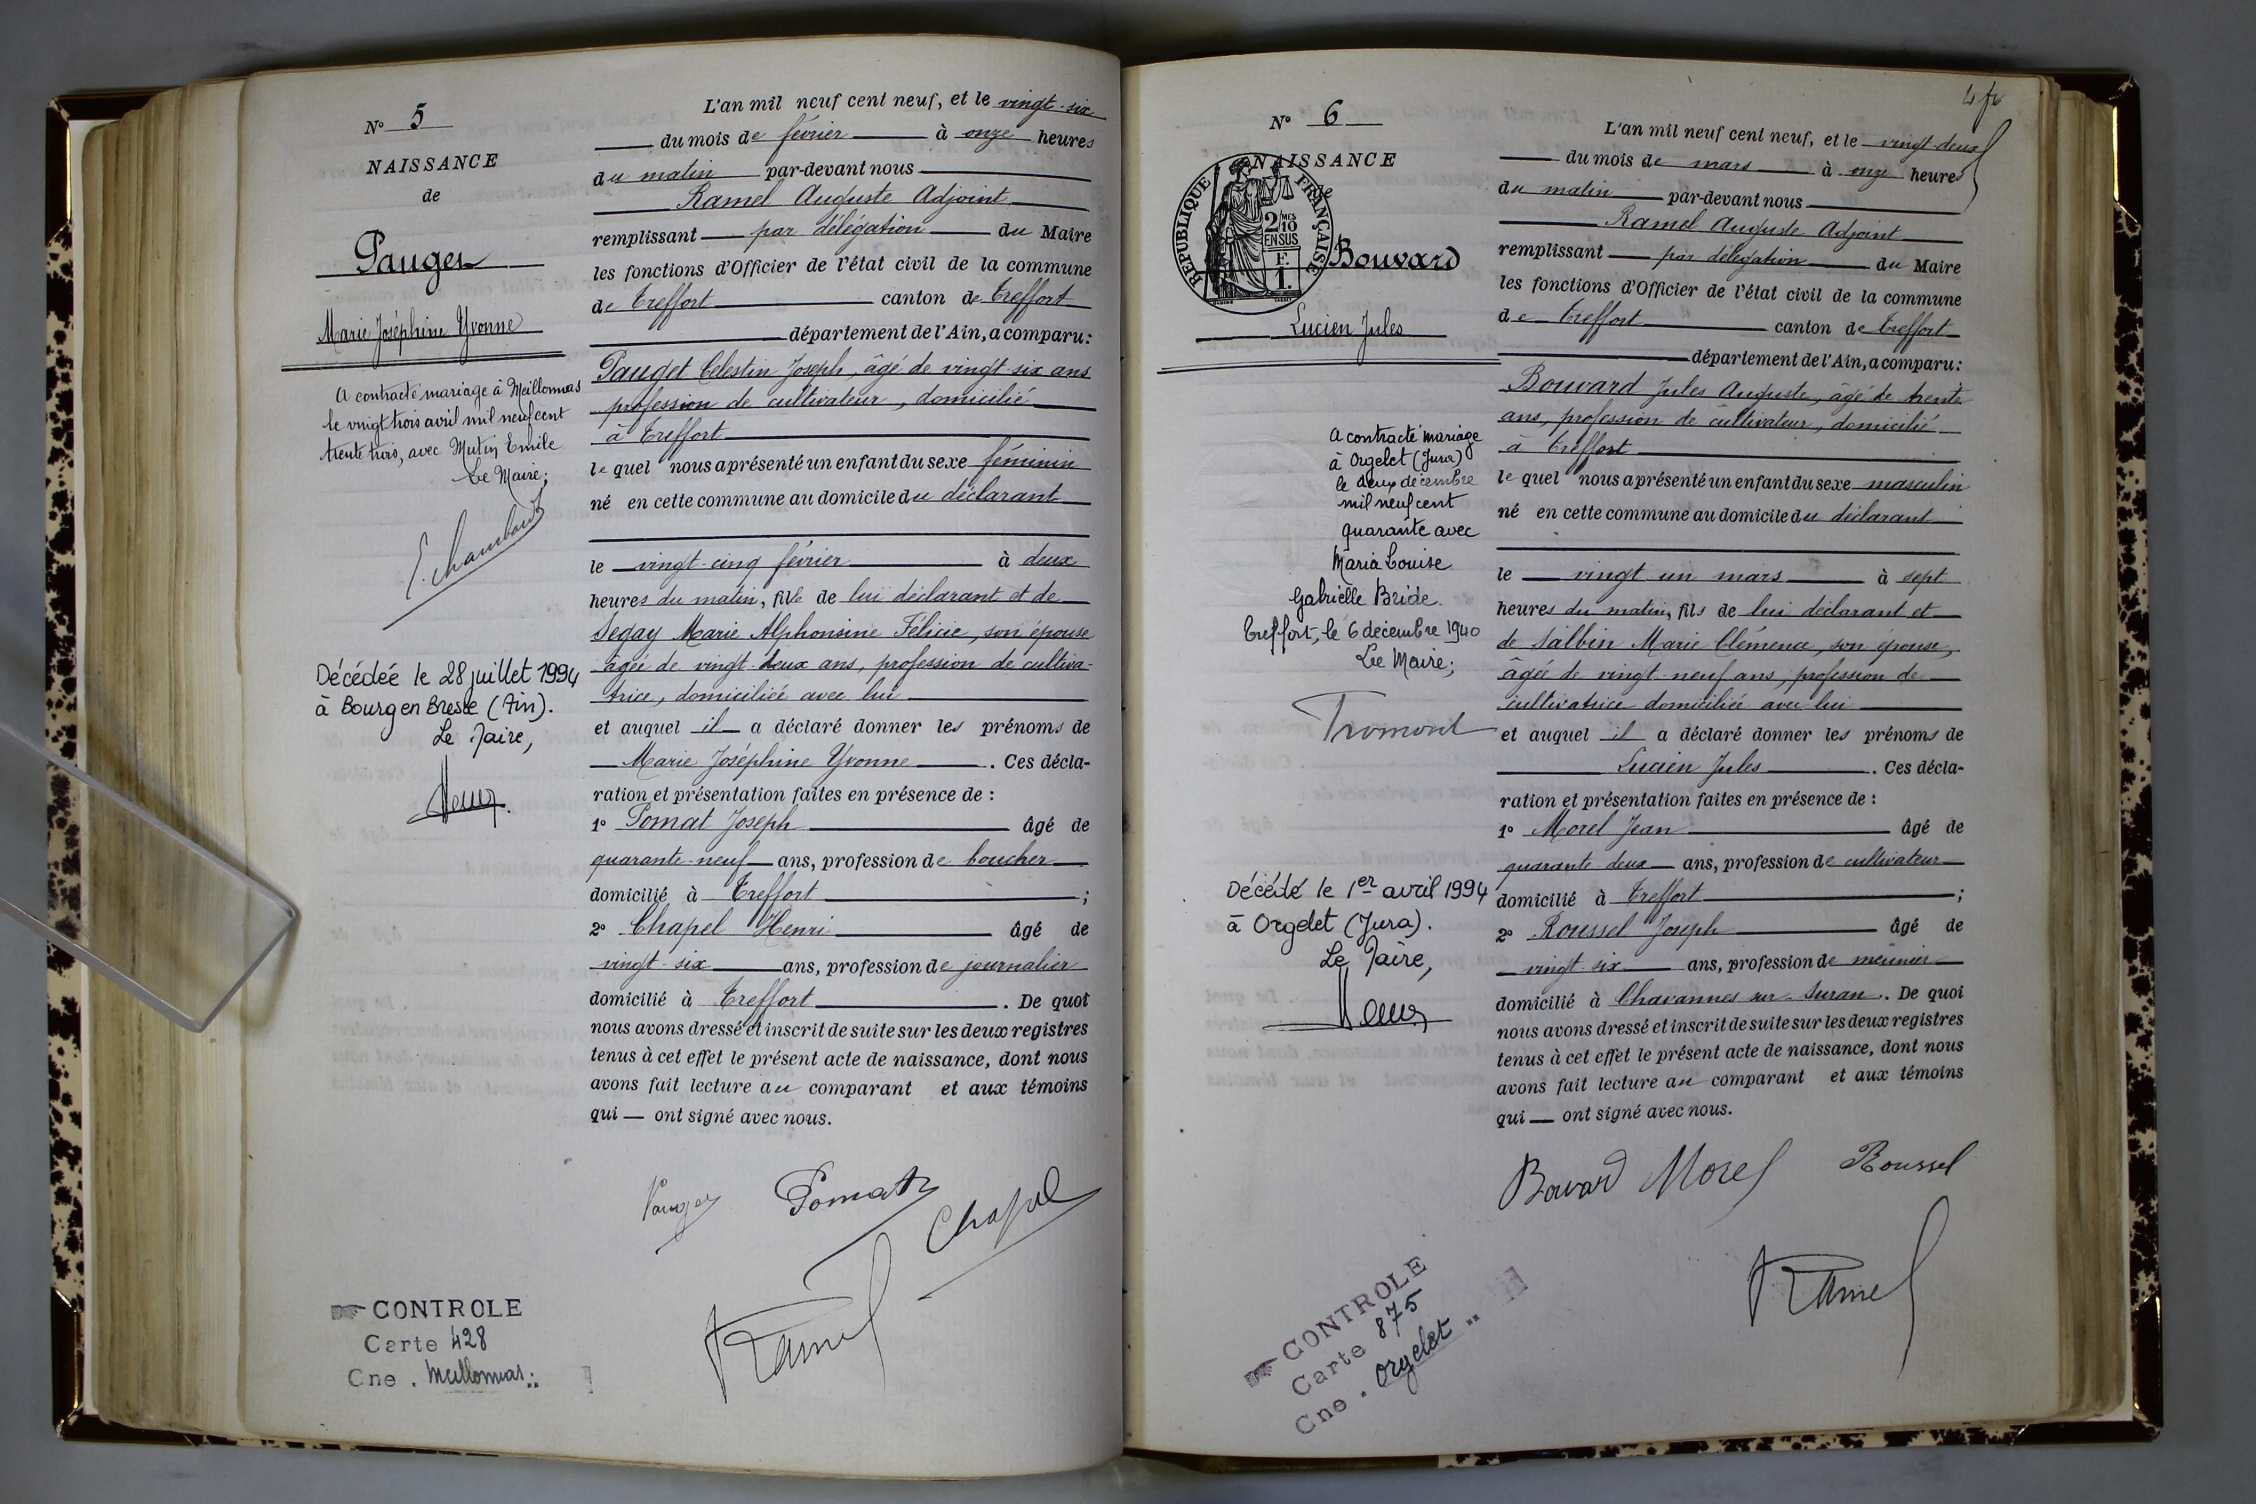 N° 5
NAISSANCE
de
Pauget
Marie Joséphine Yvonne
A contracté mariage à Meillonnas
le vingt trois avril mil neuf cent
trente trois, avec Mutin Emile
Le Maire;
E. Chambard
Décédée le 28 juillet 1994
à Bourg en Bresse (Ain).
Le Maire,
CONTROLE
Carte 428
Cne. Meillonnas
L'an mil neuf cent neuf, et le vingt-six
du mois de février à onze heures
du matin par-devant nous
Ramel Auguste Adjoint
remplissant par délégation du Maire
les fonctions d'Officier de l'état civil de la commune
de Treffort canton de Treffort
département de l'Ain, a comparu:
Pauget Célestin Joseph, âgé de vingt six ans
profession de cultivateur, domicilié
à Treffort
lequel nous a présenté un enfant du sexe féminin
né en cette commune au domicile du déclarant
le vingt-cinq février à deux
heures du matin, fils de lui déclarant et de
Segay Marie Alphonsine Félicie, son épouse
âgée de vingt-deux ans, profession de cultiva-
trice, domiciliée avec lui
et auquel il a déclaré donner les prénoms de
Marie Joséphine Yvonne. Ces décla-
ration et présentation faites en présence de :
1° Pomat Joseph âgé de
quarante-neuf ans, profession de boucher
domicilié à Treffort ;
2° Chapel Henri âgé de
vingt-six ans, profession de journalier
domicilié à Treffort. De quoi
nous avons dressé et inscrit de suite sur les deux registres
tenus à cet effet le présent acte de naissance, dont nous
avons fait lecture au comparant et aux témoins
qui — ont signé avec nous.
Pauget Pomat Chapel
Ramel
4 fr
N° 6
NAISSANCE
de
RÉPUBLIQUE FRANÇAISE
2/10 MES
EN SUS
F.
1.
Bouvard
Lucien Jules
A contracté mariage
à Orgelet (Jura)
le deux décembre
mil neuf cent
quarante avec
Maria Louise
Gabrielle Bride.
Treffort, le 6 décembre 1940
Le Maire;
Tromont
Décédé le 1er avril 1994
à Orgelet (Jura).
Le Maire,
CONTROLE
Carte 875
Cne. Orgelet
L'an mil neuf cent neuf, et le vingt-deux
du mois de mars à onze heures
du matin par-devant nous
Ramel Auguste Adjoint
remplissant par délégation du Maire
les fonctions d'Officier de l'état civil de la commune
de Treffort canton de Treffort
département de l'Ain, a comparu:
Bouvard Jules Auguste, âgé de trente
ans, profession de cultivateur, domicilié
à Treffort
lequel nous a présenté un enfant du sexe masculin
né en cette commune au domicile du déclarant
le vingt un mars à sept
heures du matin, fils de lui déclarant et
de Salbin Marie Clémence, son épouse,
âgée de vingt-neuf ans, profession de
cultivatrice domiciliée avec lui
et auquel il a déclaré donner les prénoms de
Lucien Jules. Ces décla-
ration et présentation faites en présence de :
1° Morel Jean âgé de
quarante-deux ans, profession de cultivateur
domicilié à Treffort ;
2° Roussel Joseph âgé de
vingt-six ans, profession de meunier
domicilié à Chavannes sur Suran. De quoi
nous avons dressé et inscrit de suite sur les deux registres
tenus à cet effet le présent acte de naissance, dont nous
avons fait lecture au comparant et aux témoins
qui — ont signé avec nous.
Bouvard Morel Roussel
Ramel